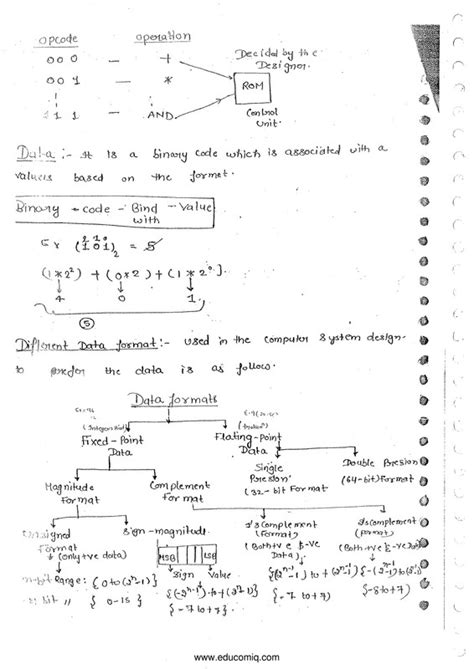 opcode operation
000 — + Decided by the
Designor.
001 — *
ROM
111 — AND Control
Unit.
Data :- It is a binary code which is associated with a
values based on the format.
Binary - code - Bind - Value
with
Ex (101)₂ = 5
2 1 0
(1*2²) + (0*2) + (1*2⁰).
4 0 1
5
Different Data format :- used in the computer system design-
to prefer the data is as follows.
Data formats
(Integers)
Fixed-Point
Data
Floting-point
Data
Single
Presion
(32-bit Format)
Double Presion
(64-bit) Format
Magnitude
Format
Complement
Format
Unsigned
Format
(only +ve data)
Sign-magnitude
MSB LSB
Sign Value
1's Complement
(Format)
(Both +ve & -ve
Data)
2's Complement
(Format)
(Both +ve & -ve)
n-bit Range: {0 to (2ⁿ-1)}
{-(2ⁿ⁻¹-1) to +(2ⁿ⁻¹-1)}
{-(2ⁿ⁻¹) to +(2ⁿ⁻¹-1)}
bit ,, {0-15}
{-7 to +7}
{-7 to +7}
{-8 to +7}
www.educomiq.com